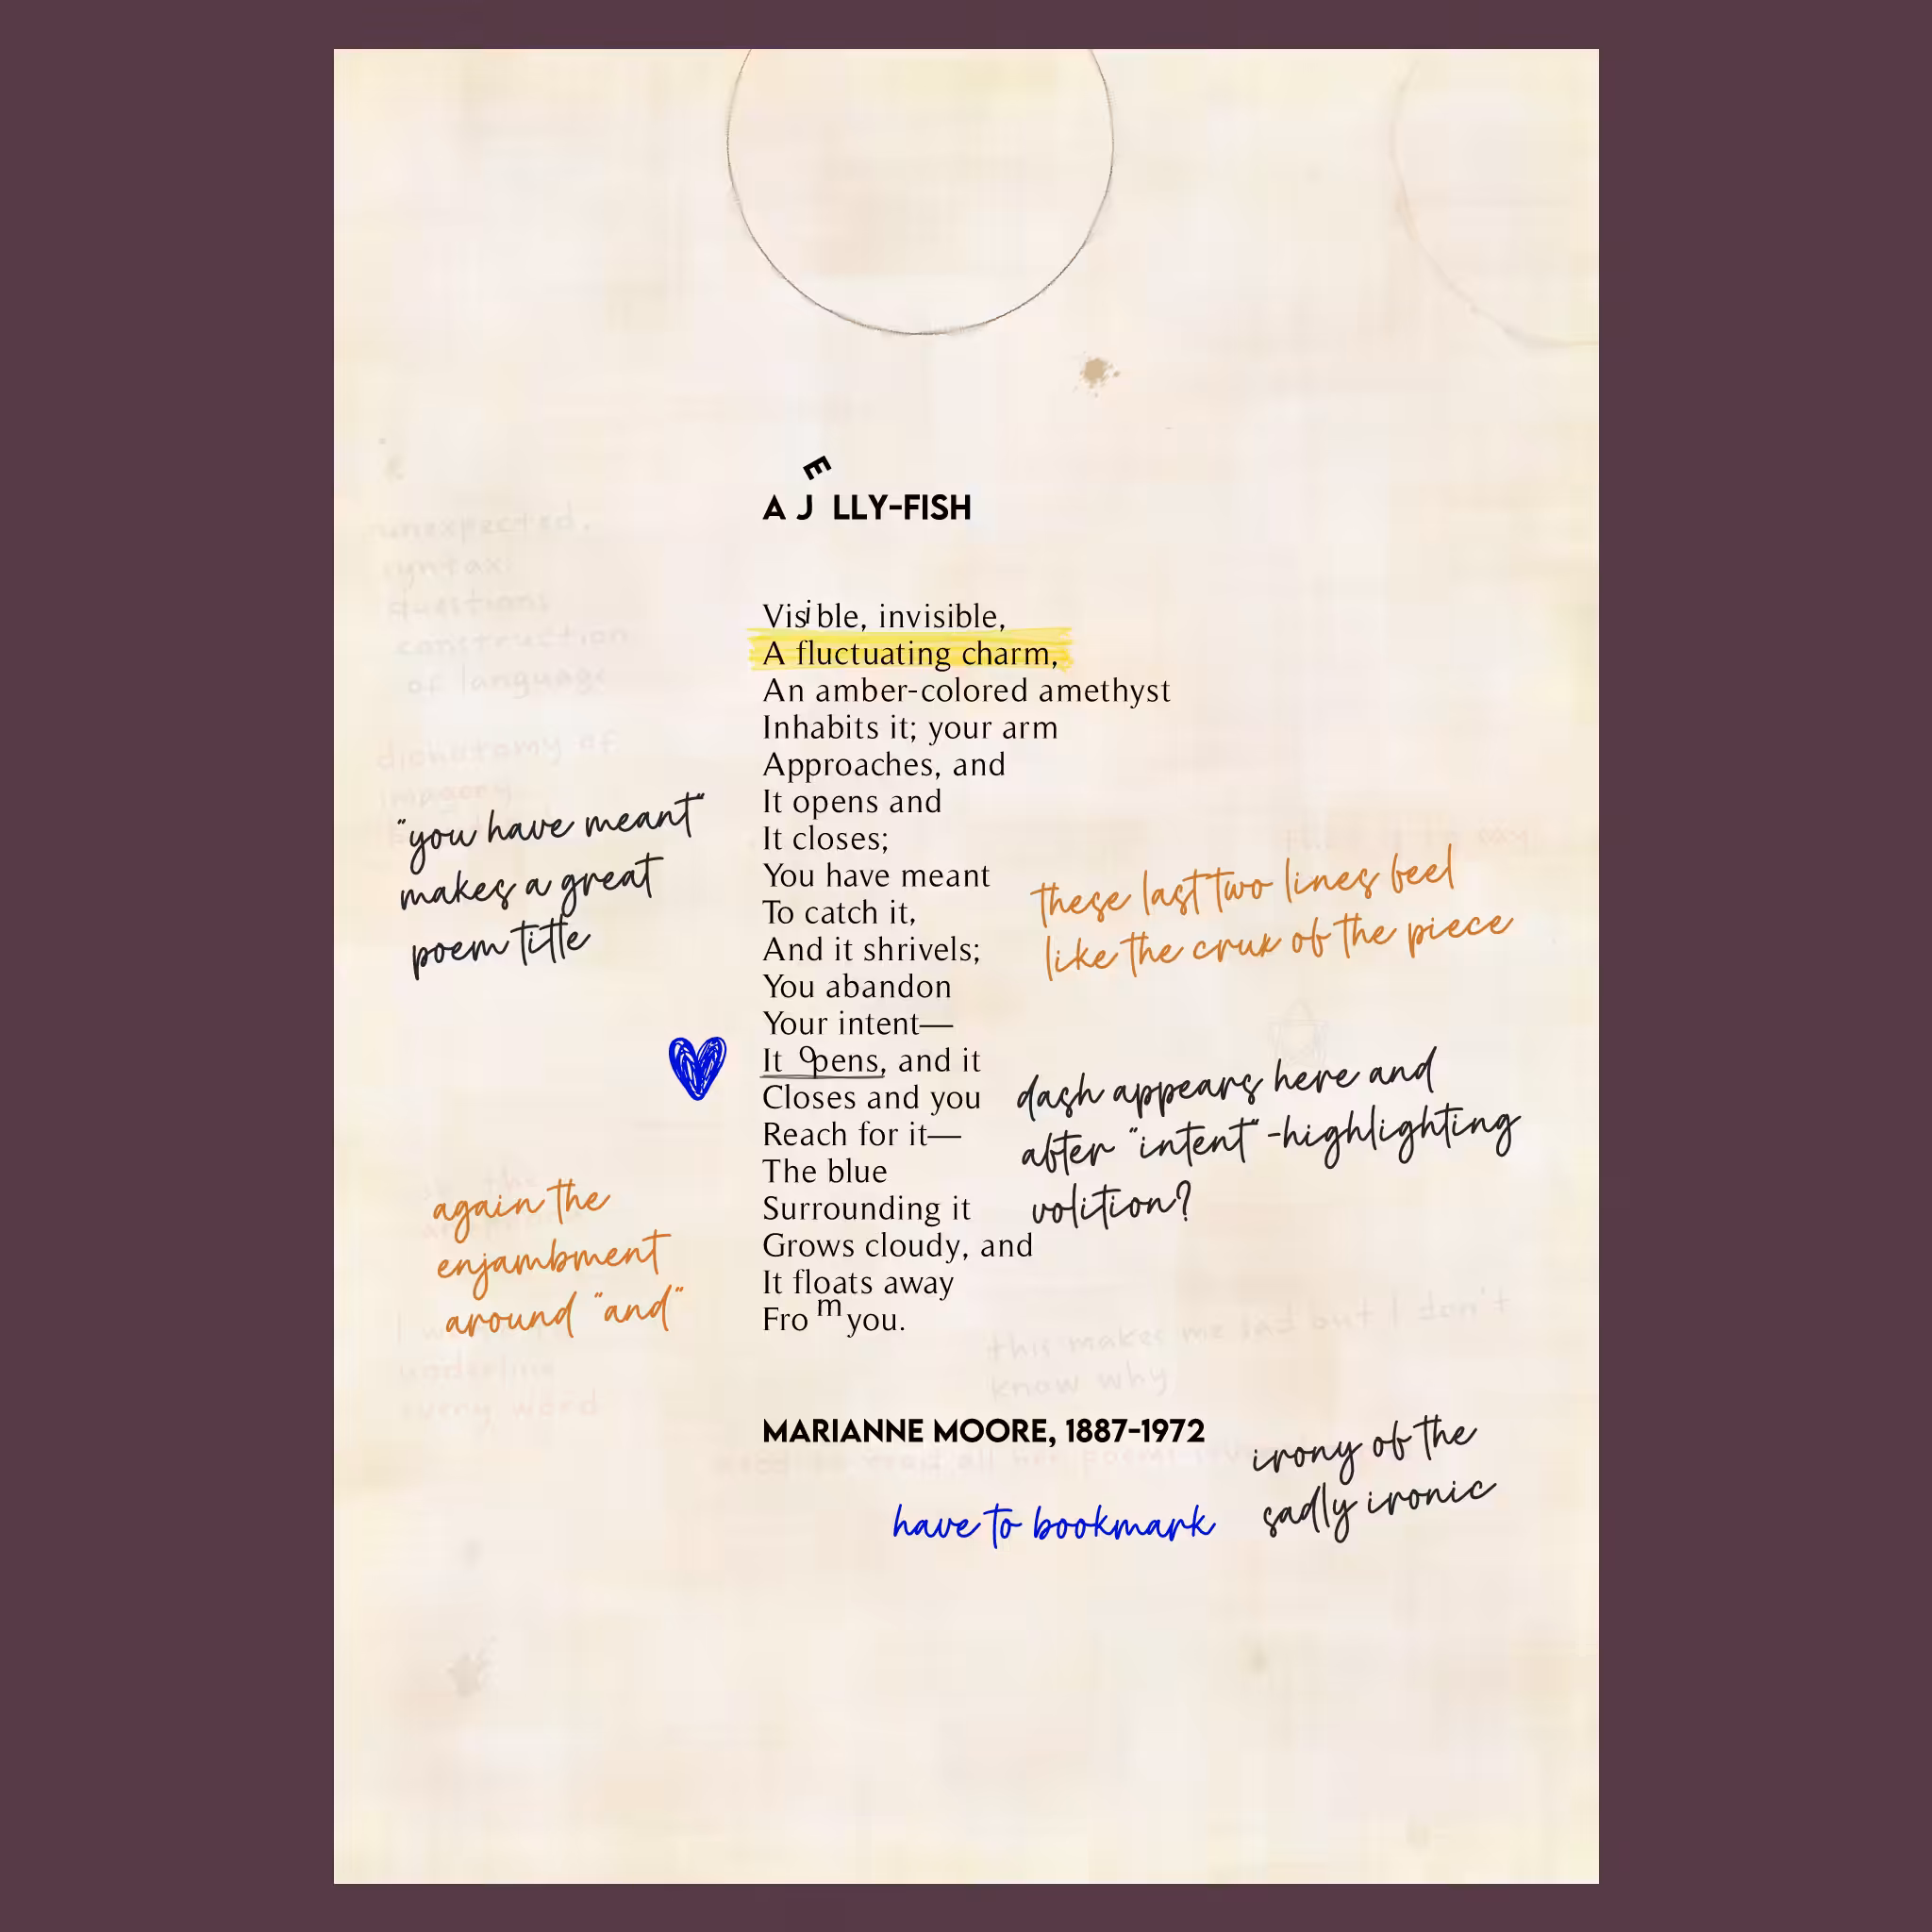 A JELLY-FISH
Visible, invisible,
A fluctuating charm,
An amber-colored amethyst
Inhabits it; your arm
Approaches, and
It opens and
It closes;
You have meant
To catch it,
And it shrivels;
You abandon
Your intent—
It opens, and it
Closes and you
Reach for it—
The blue
Surrounding it
Grows cloudy, and
It floats away
From you.
MARIANNE MOORE, 1887-1972
"you have meant"
makes a great
poem title
these last two lines feel
like the crux of the piece
dash appears here and
after "intent" -highlighting
volition?
again the
enjambment
around "and"
irony of the
sadly ironic
have to bookmark
unexpected.
syntax
questions
construction
of language
dichotomy of
imagery
this makes me sad but I don't
know why
underline
every word